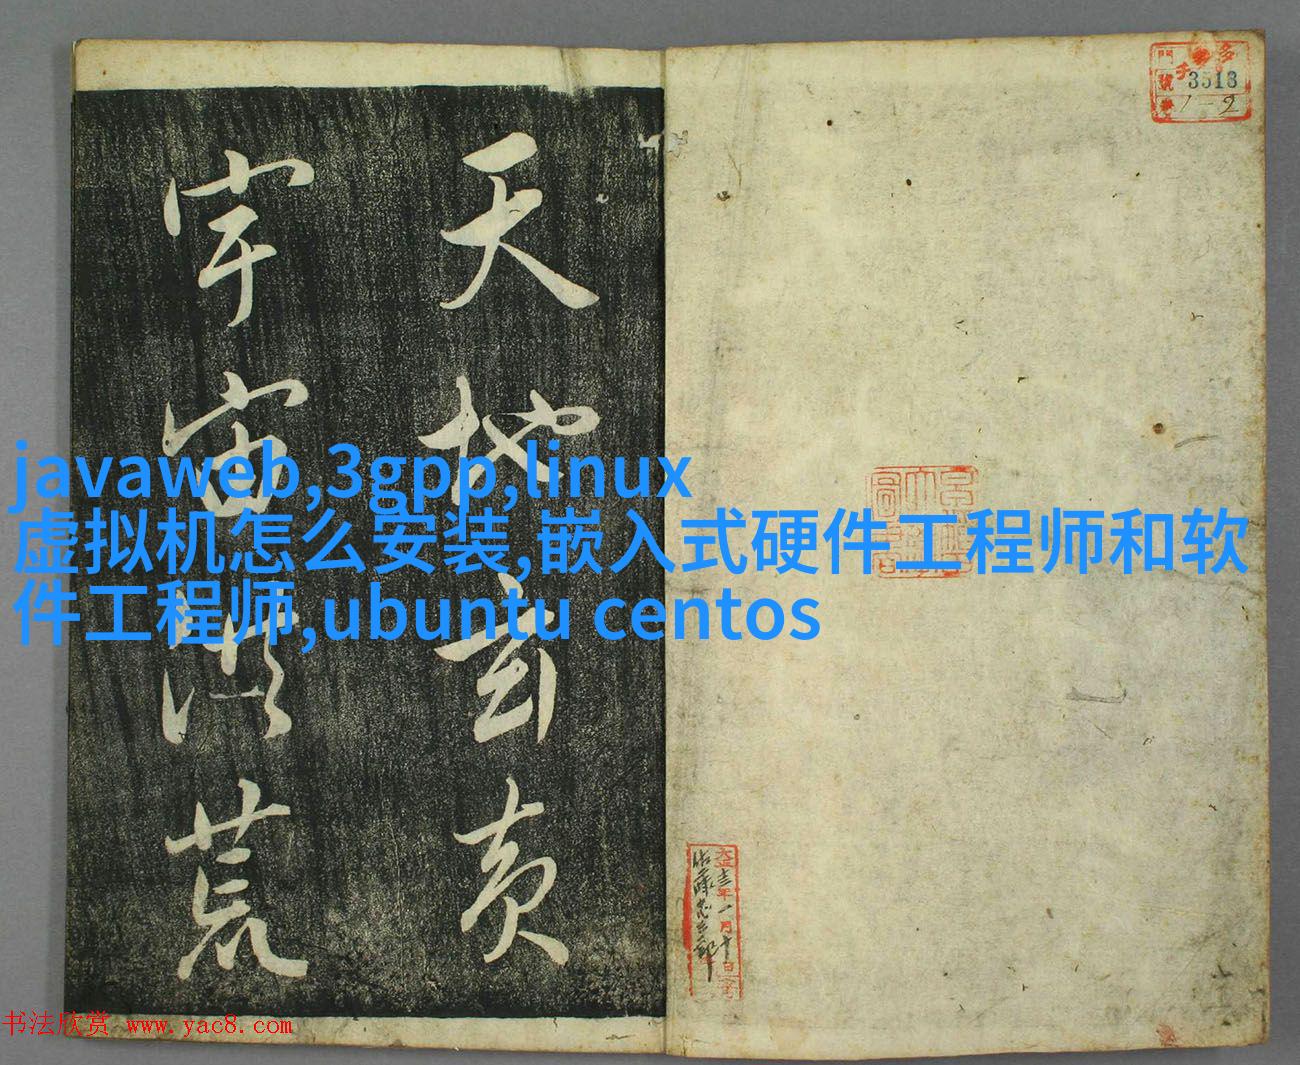 天地玄黄
宇宙洪荒
3513
1-2
javaweb,3gpp,linux
虚拟机怎么安装,嵌入式硬件工程师和软
件工程师,ubuntu centos
大正十三年一月十日
书法欣赏 www.yac8.com